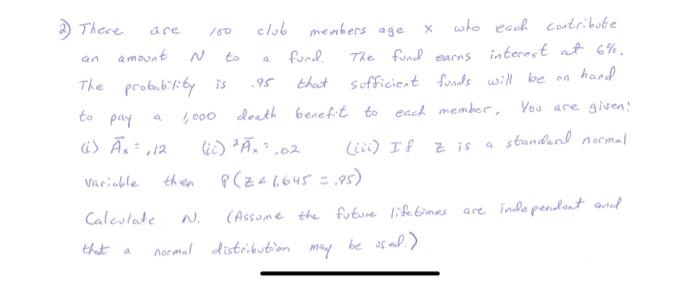 2) There are 100 club members age x who each contribute
an amount N to a fund. The fund earns interest at 6%.
The probability is .95 that sufficient funds will be on hand
to pay a 1,000 death benefit to each member. You are given:
(i) Āx = .12 (ii) ²Āx = .02 (iii) If z is a standard normal
variable then P(Z < 1.645 = .95)
Calculate N. (Assume the future lifetimes are independent and
that a normal distribution may be used.)